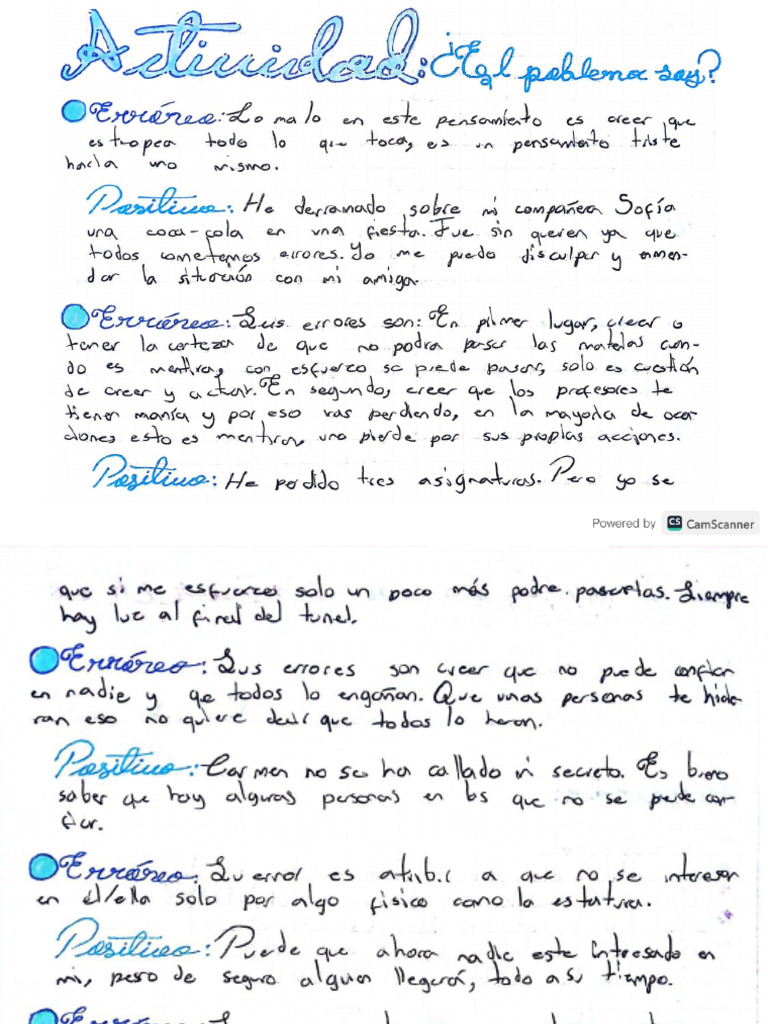 Actividad: ¿El poblema soy?
Erróneo: Lo malo en este pensamiento es creer que
estropea todo lo que toca, es un pensamiento triste
hacia uno mismo.
Positivo: He derramado sobre mi compañera Sofía
una coca-cola en una fiesta. Fue sin querer ya que
todos cometemos errores. Yo me puedo disculpar y enmen-
dar la situación con mi amiga.
Erróneo: Sus errores son: En primer lugar, creer o
tener la certeza de que no podra pasar las materias cuan-
do es mentira, con esfuerzo se puede pasar, solo es cuestión
de creer y actuar. En segundo, creer que los profesores te
tienen manía y por eso vas perdiendo, en la mayoria de oca
ciones esto es mentira, uno pierde por sus propias acciones.
Positivo: He perdido tres asignaturas. Pero yo se
Powered by CS CamScanner
que si me esfuerzo solo un poco más podre pasarlas. Siempre
hay luz al final del tunel.
Erróneo: Sus errores son creer que no puede confiar
en nadie y qe todos lo engañan. Que unas personas te hicie
ran eso no quiere decir que todas lo haran.
Positivo: Carmen no se ha callado mi secreto. Es bueno
saber que hay algunas personas en las que no se puede con
fiar.
Erróneo: Su error es atribuir a que no se interesen
en él/ella solo por algo fisico como la estatura.
Positivo: Puede que ahora nadie este interesado en
mi, pero de seguro alguien llegará, todo a su tiempo.